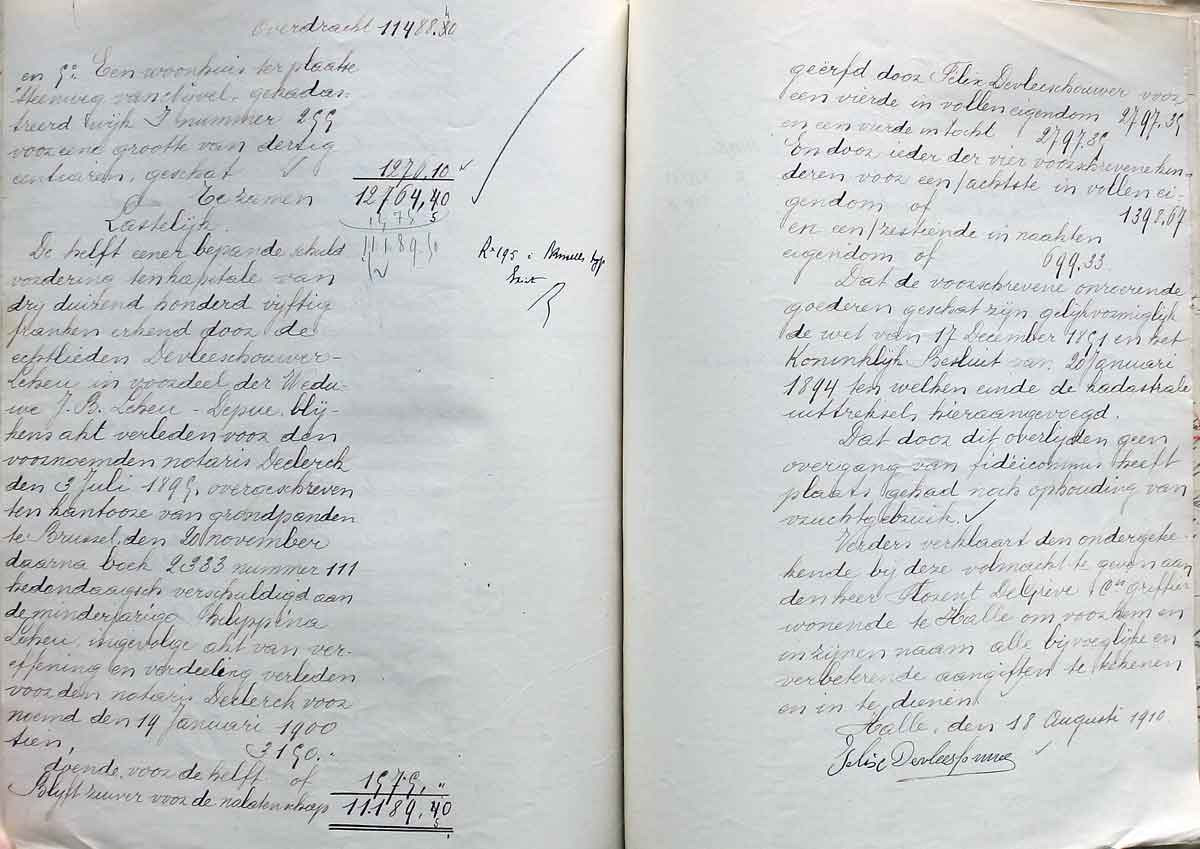 Overdracht 11488.30
en 5°: Een woonhuis ter plaatse
Steenweg van Nijvel, gekadas-
treerd wijk I nummer 255
voor eene grootte van dertig
centiaren, geschat 1276,10
Te zamen 12764,40
1575
11189,50
Lastelijk.
De helft eener bepande schuld
vordering ten kapitale van
dry duizend honderd vyftig
franken erkend door de
echtlieden Devleeschouwer-
Leheu in voordeel der Wedu-
we J. B. Leheu - Depue, blij-
kens akt verleden voor den
voornoemden notaris Declerck
den 3 Juli 1895, overgeschreven
ten kantoore van grondpanden
te Brussel, den 20 november
daarna boek 2333 nummer 111
hedendaagsch verschuldigd aan
de minderjarige Philippina
Leheu, ingevolge akt van ver-
effening en verdeeling verleden
voor den notaris Declerck voor
noemd den 19 Januari 1900
tien, 3150.
doende voor de helft of 1575,"
Blyft zuiver voor de nalatenschap 11189,40
R 195
geërfd door Felix Devleeschouwer voor
een vierde in vollen eigendom 2797.35
en een vierde in tocht 2797.35
En door ieder der vier voorschrevene kin-
deren voor een/achtste in vollen ei-
gendom of 1398.67
en een/zestiende in naakten
eigendom of 699.33
Dat de voorschrevene onroerende
goederen geschat zijn gelijkvormiglijk
de wet van 17 December 1851 en het
Koninklijk Besluit van 20 Januari
1894 ten welken einde de kadastrale
uittreksels hieraangevoegd.
Dat door dit overlijden geen
overgang van fidéicommis heeft
plaats gehad noch ophouding van
vruchtgebruik.
Verders verklaart den ondergetee-
kende bij deze volmacht te geven aan
den heer Florent Delgiève griffier
wonende te Halle om voor hem en
in zijnen naam alle bijvoeglijke en
verbeterende aangiften te tekenen
en in te dienen
Halle, den 18 Augusti 1910
Felix Devleeschouwer